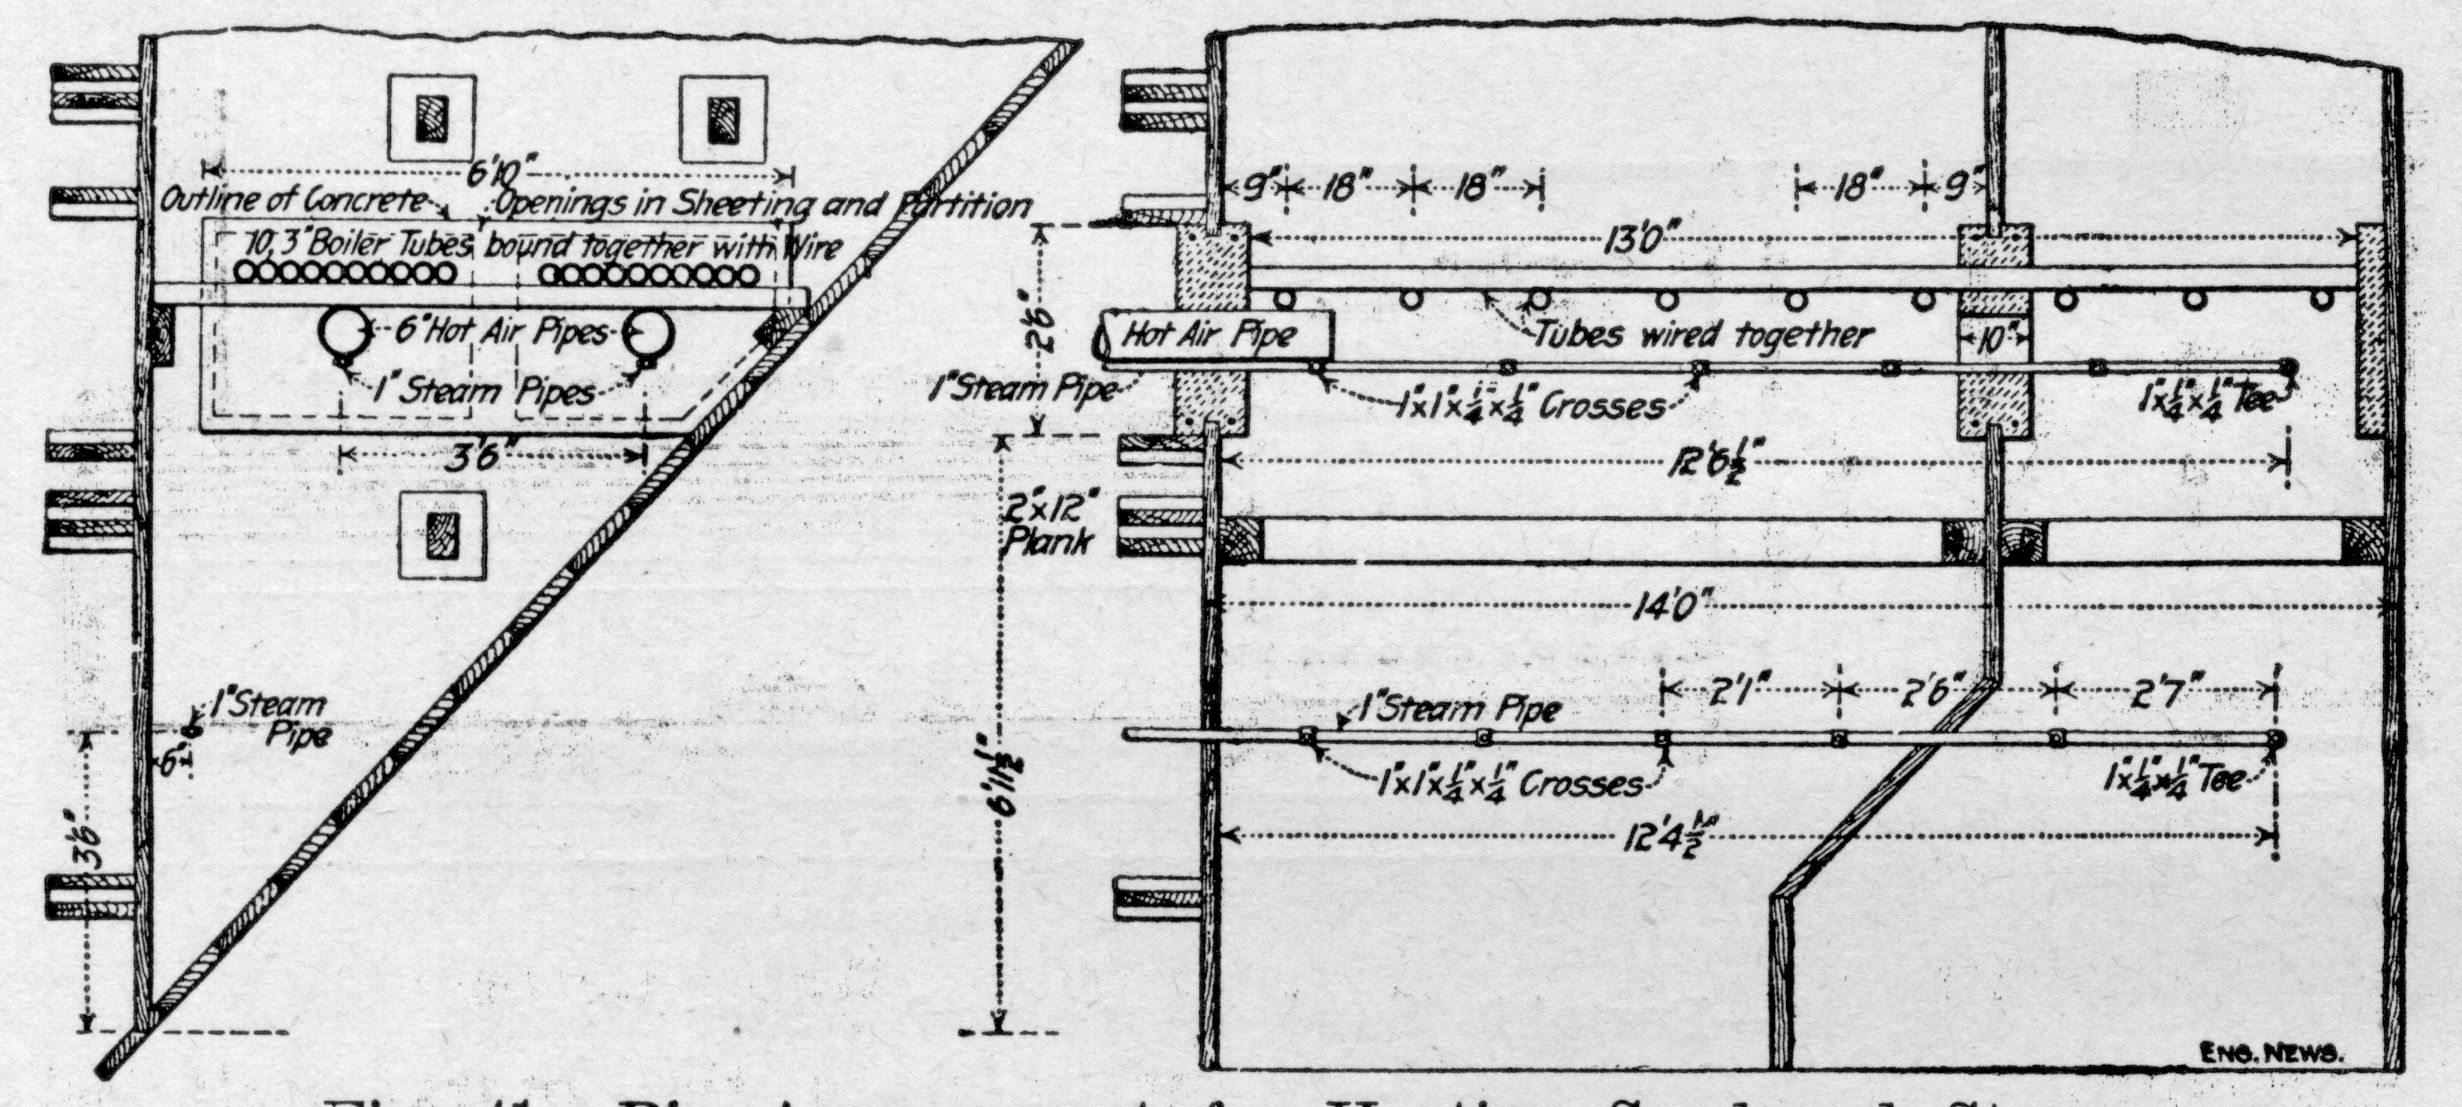 6'10"
Outline of Concrete
Openings in Sheeting and Partition
10, 3" Boiler Tubes bound together with Wire
6" Hot Air Pipes
1" Steam Pipes
3'6"
1" Steam
Pipe
6"
3'6"
9"
18"
18"
18"
9"
13'0"
2'6"
Hot Air Pipe
Tubes wired together
10"
1" Steam Pipe
1"x1"x1/4"x1/4" Crosses
1"x1/4"x1/4" Tee
12'6 1/2"
2"x12"
Plank
14'0"
6'11 1/2"
2'1"
2'6"
2'7"
1" Steam Pipe
1"x1"x1/4"x1/4" Crosses
1"x1/4"x1/4" Tee
12'4 1/2"
ENG. NEWS.